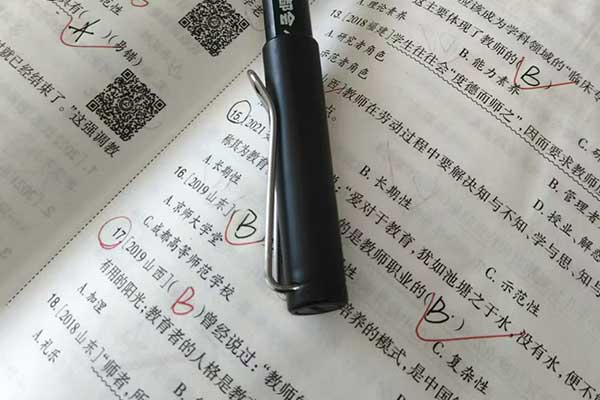 具有( A )(易错)
就已经结束了。”这强调教
理论素养
13.[2018福建]学生往往会“度德而师之”,因而要求教师
A.研究者角色
B.能力素养
( B )
这主要体现了教师的
应该成为学科领域的“临床专
15.[2021
教师在劳动过程中要解决知与不知、学与思、知与
称其为教育
A.长期性
B.长期性
B.管理者
D.授业、解惑
C.示范性
16.[2019山东]
“爱对于教育,犹如池塘之于水,没有水,便不
A.京师大学堂
( B )
C.成都高等师范学校
的是教师职业的( B )
C.复杂性
17.[2019山西]( B )曾经说过:“教师
培养的模式,是中国
有用的阳光,教育者的人格是教
A.加涅
18.[2018山东]“师者,所
A.礼乐